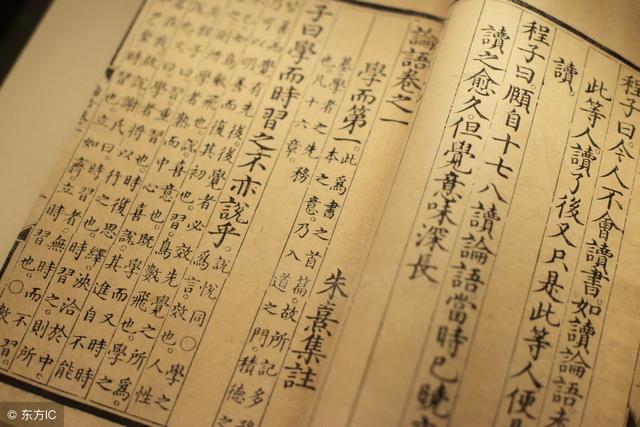 程子曰。今人不會讀書。如讀論語。未
此等人。讀了後又只是此等人。便
讀。
程子曰。頤自十七八讀論語。當時已曉
讀之愈久。但覺意味深長
論語卷之一
朱熹集註
學而第一
此爲書之首篇。故所記多
本之意。乃入道之門。積德之
基。學者之先務
也。凡十六章。
子曰學而時習之不亦說乎。
說悅同○學之
爲言效也。人性
皆善而覺有先後。後覺者必效先覺之所爲。
乃可以明善而復其初也。習鳥數飛也。學之
不已如鳥數飛也。說喜意也。既學而又時時
習之。則所學者熟而中心喜說。其進自不能
已矣。程子曰。習重習也。時復思繹浹洽於中。
則說也。又曰。學者將以行之也。時習之。則所
學者在我故說。謝氏曰。時習者。無時而不習。
© 东方IC